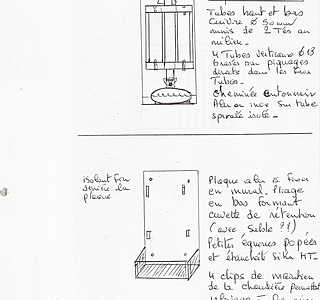 Tubes haut et bas
Cuivre ø 50mm
munis de 2 Tés au
milieu -
4 Tubes verticaux ø 13
brasés sur piquages
directs dans les gros
Tubes -
Cheminée entonnoir
Alu ou inox sur tube
spiralé isolé -
isolant fin
derrière la
plaque
Plaque alu à fixer
en mural. Pliage
en bas formant
cuvette de rétention
(avec sable ??)
Petites équerres
et étanchéité silic HT -
4 clips de maintien
de la chaudière